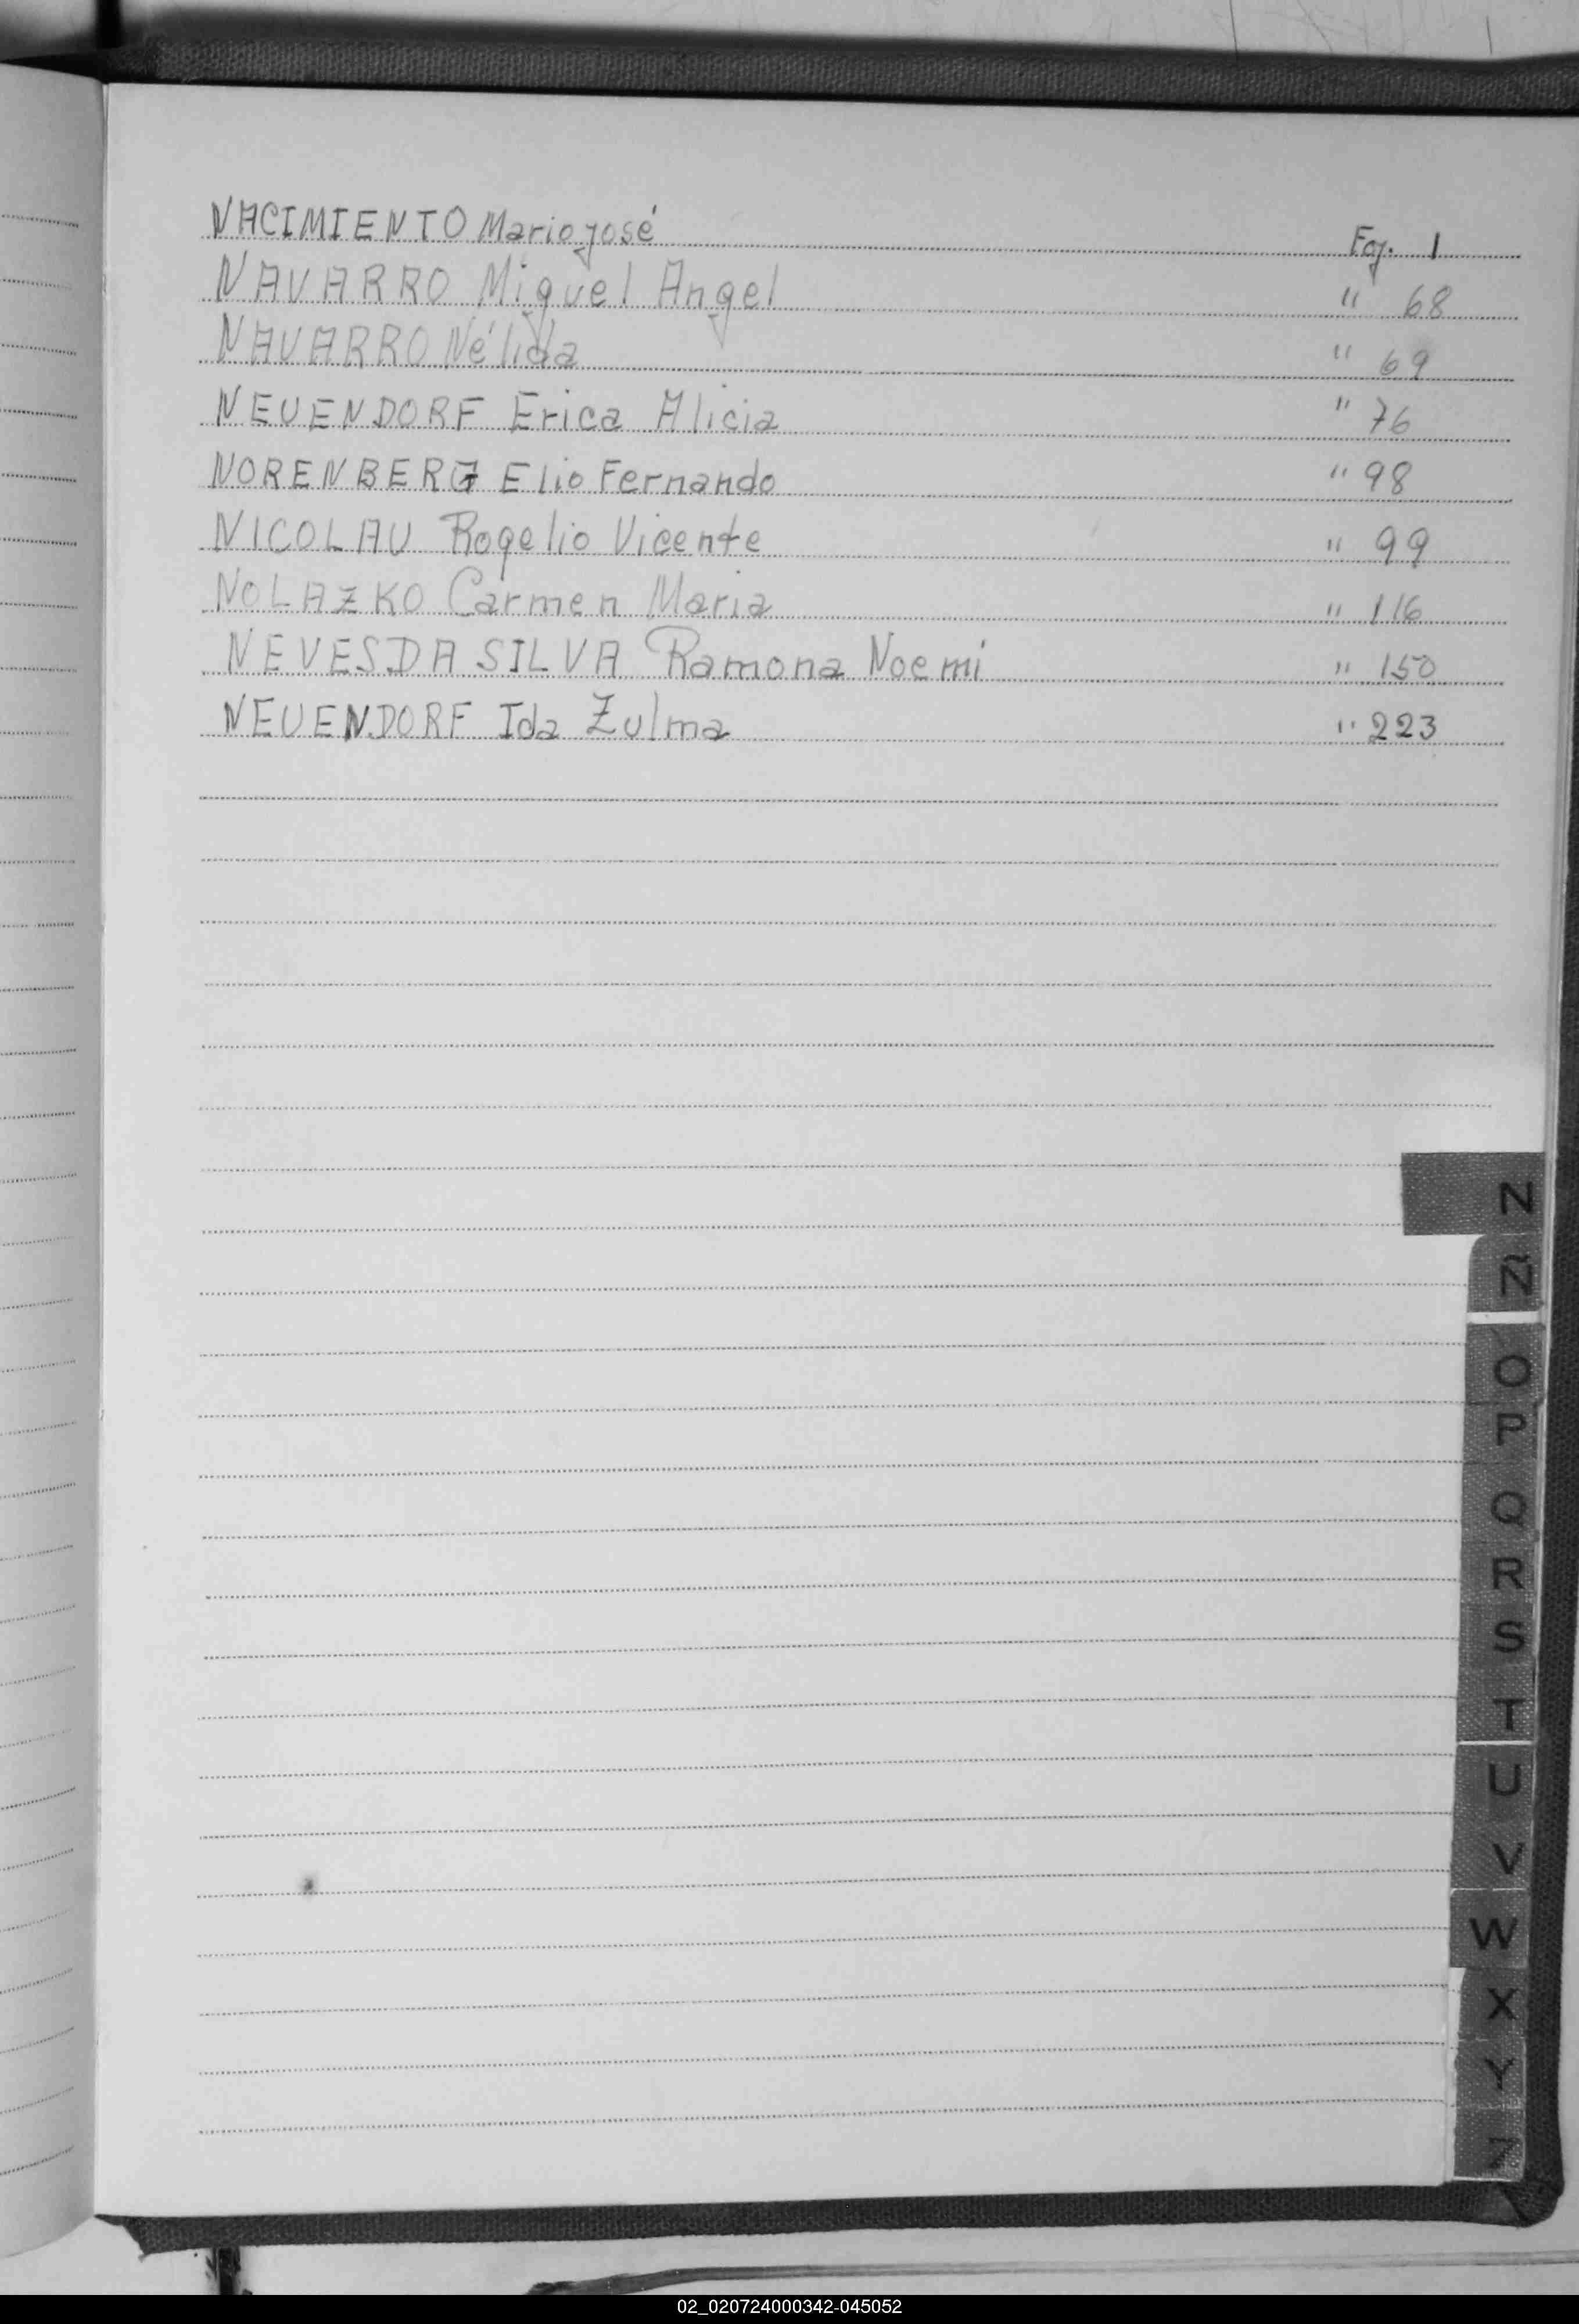 NACIMIENTO Mario José Fol. 1
NAVARRO Miguel Angel " 68
NAVARRO Nélida " 69
NEUENDORF Erica Alicia " 76
NORENBERG Elio Fernando " 98
NICOLAU Rogelio Vicente " 99
NOLAZKO Carmen Maria " 116
NEVES DA SILVA Ramona Noemi " 150
NEUENDORF Ida Zulma " 223
N
Ñ
O
P
Q
R
S
T
U
V
W
X
Y
Z
02_020724000342-045052